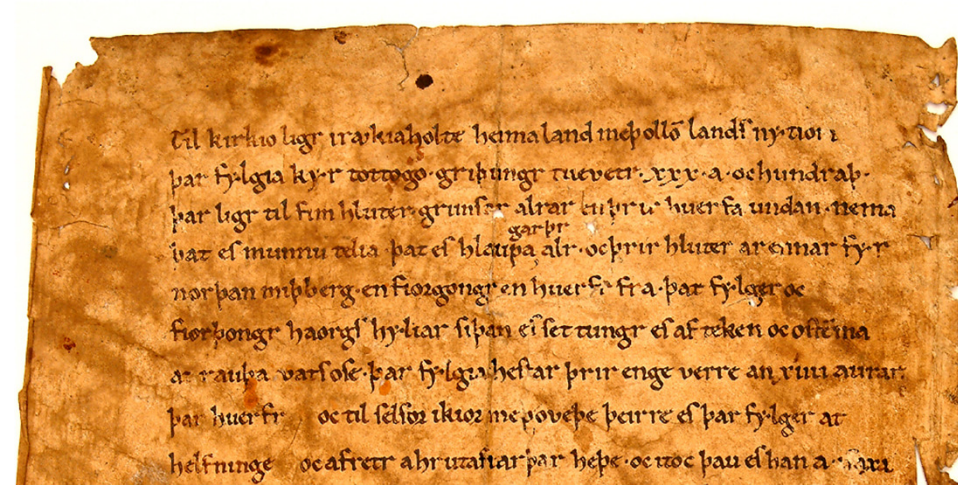 Til kirkio ligr i raykiaholte heimaland meþ ollō landſ nytioı
þar fylgia kyr tottogo · griþungr tuevetr · xxx · a · oc hundraþ ·
þar ligr til fim hluter · grimſar allrar en þrir huerfa undan · nema
garþr
þat eſ munnu telia þat eſ hlaupa alr · oc þrir hluter ar ennar fyr
norþan miþberg · en fiorgongr en huerfr fra · þat fylger oc
fiorþongr haorgſ hyliar ſiþan eī ſettungr eſ af teken oc oſtēina
a rauþa vatſ oſe · þar fylgia heſtar þrir enge verre an xiiii aurar
þar huerfr oc til ſelſfor i kior meþ oveþe þeirre eſ þar fylger at
helfninge oc afretr a hrutafiarþar heþe · oc itoc þau eſ han a ·